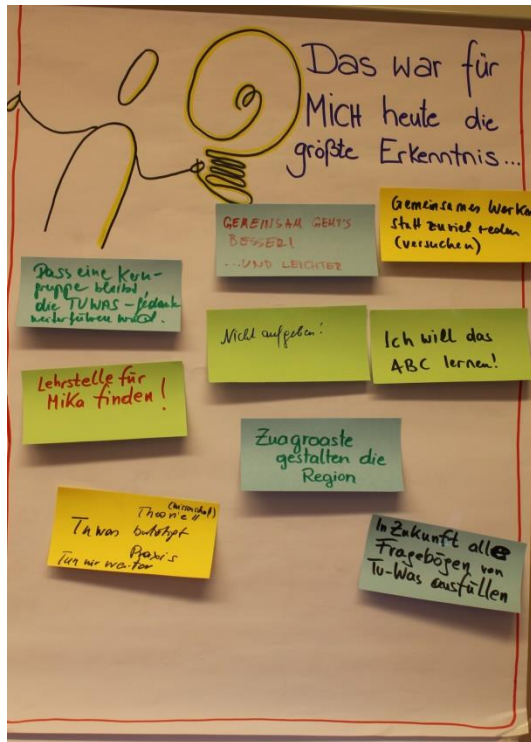 Das war für
MICH heute die
größte Erkenntnis...
GEMEINSAM GEHT'S
BESSER!
...UND LEICHTER
Gemeinsames Werken
statt zuviel reden
(versuchen)
Dass eine Kern-
gruppe bleibt,
die TUWAS-Gedank
weiterführen wird.
Nicht aufgeben!
Ich will das
ABC lernen!
Lehrstelle für
Mika finden!
Zuagroaste
gestalten die
Region
(wissenschaf)
Theorie
Tu was
Praxis
Tun wir weiter
In Zukunft alle
Fragebögen von
Tu-Was ausfüllen